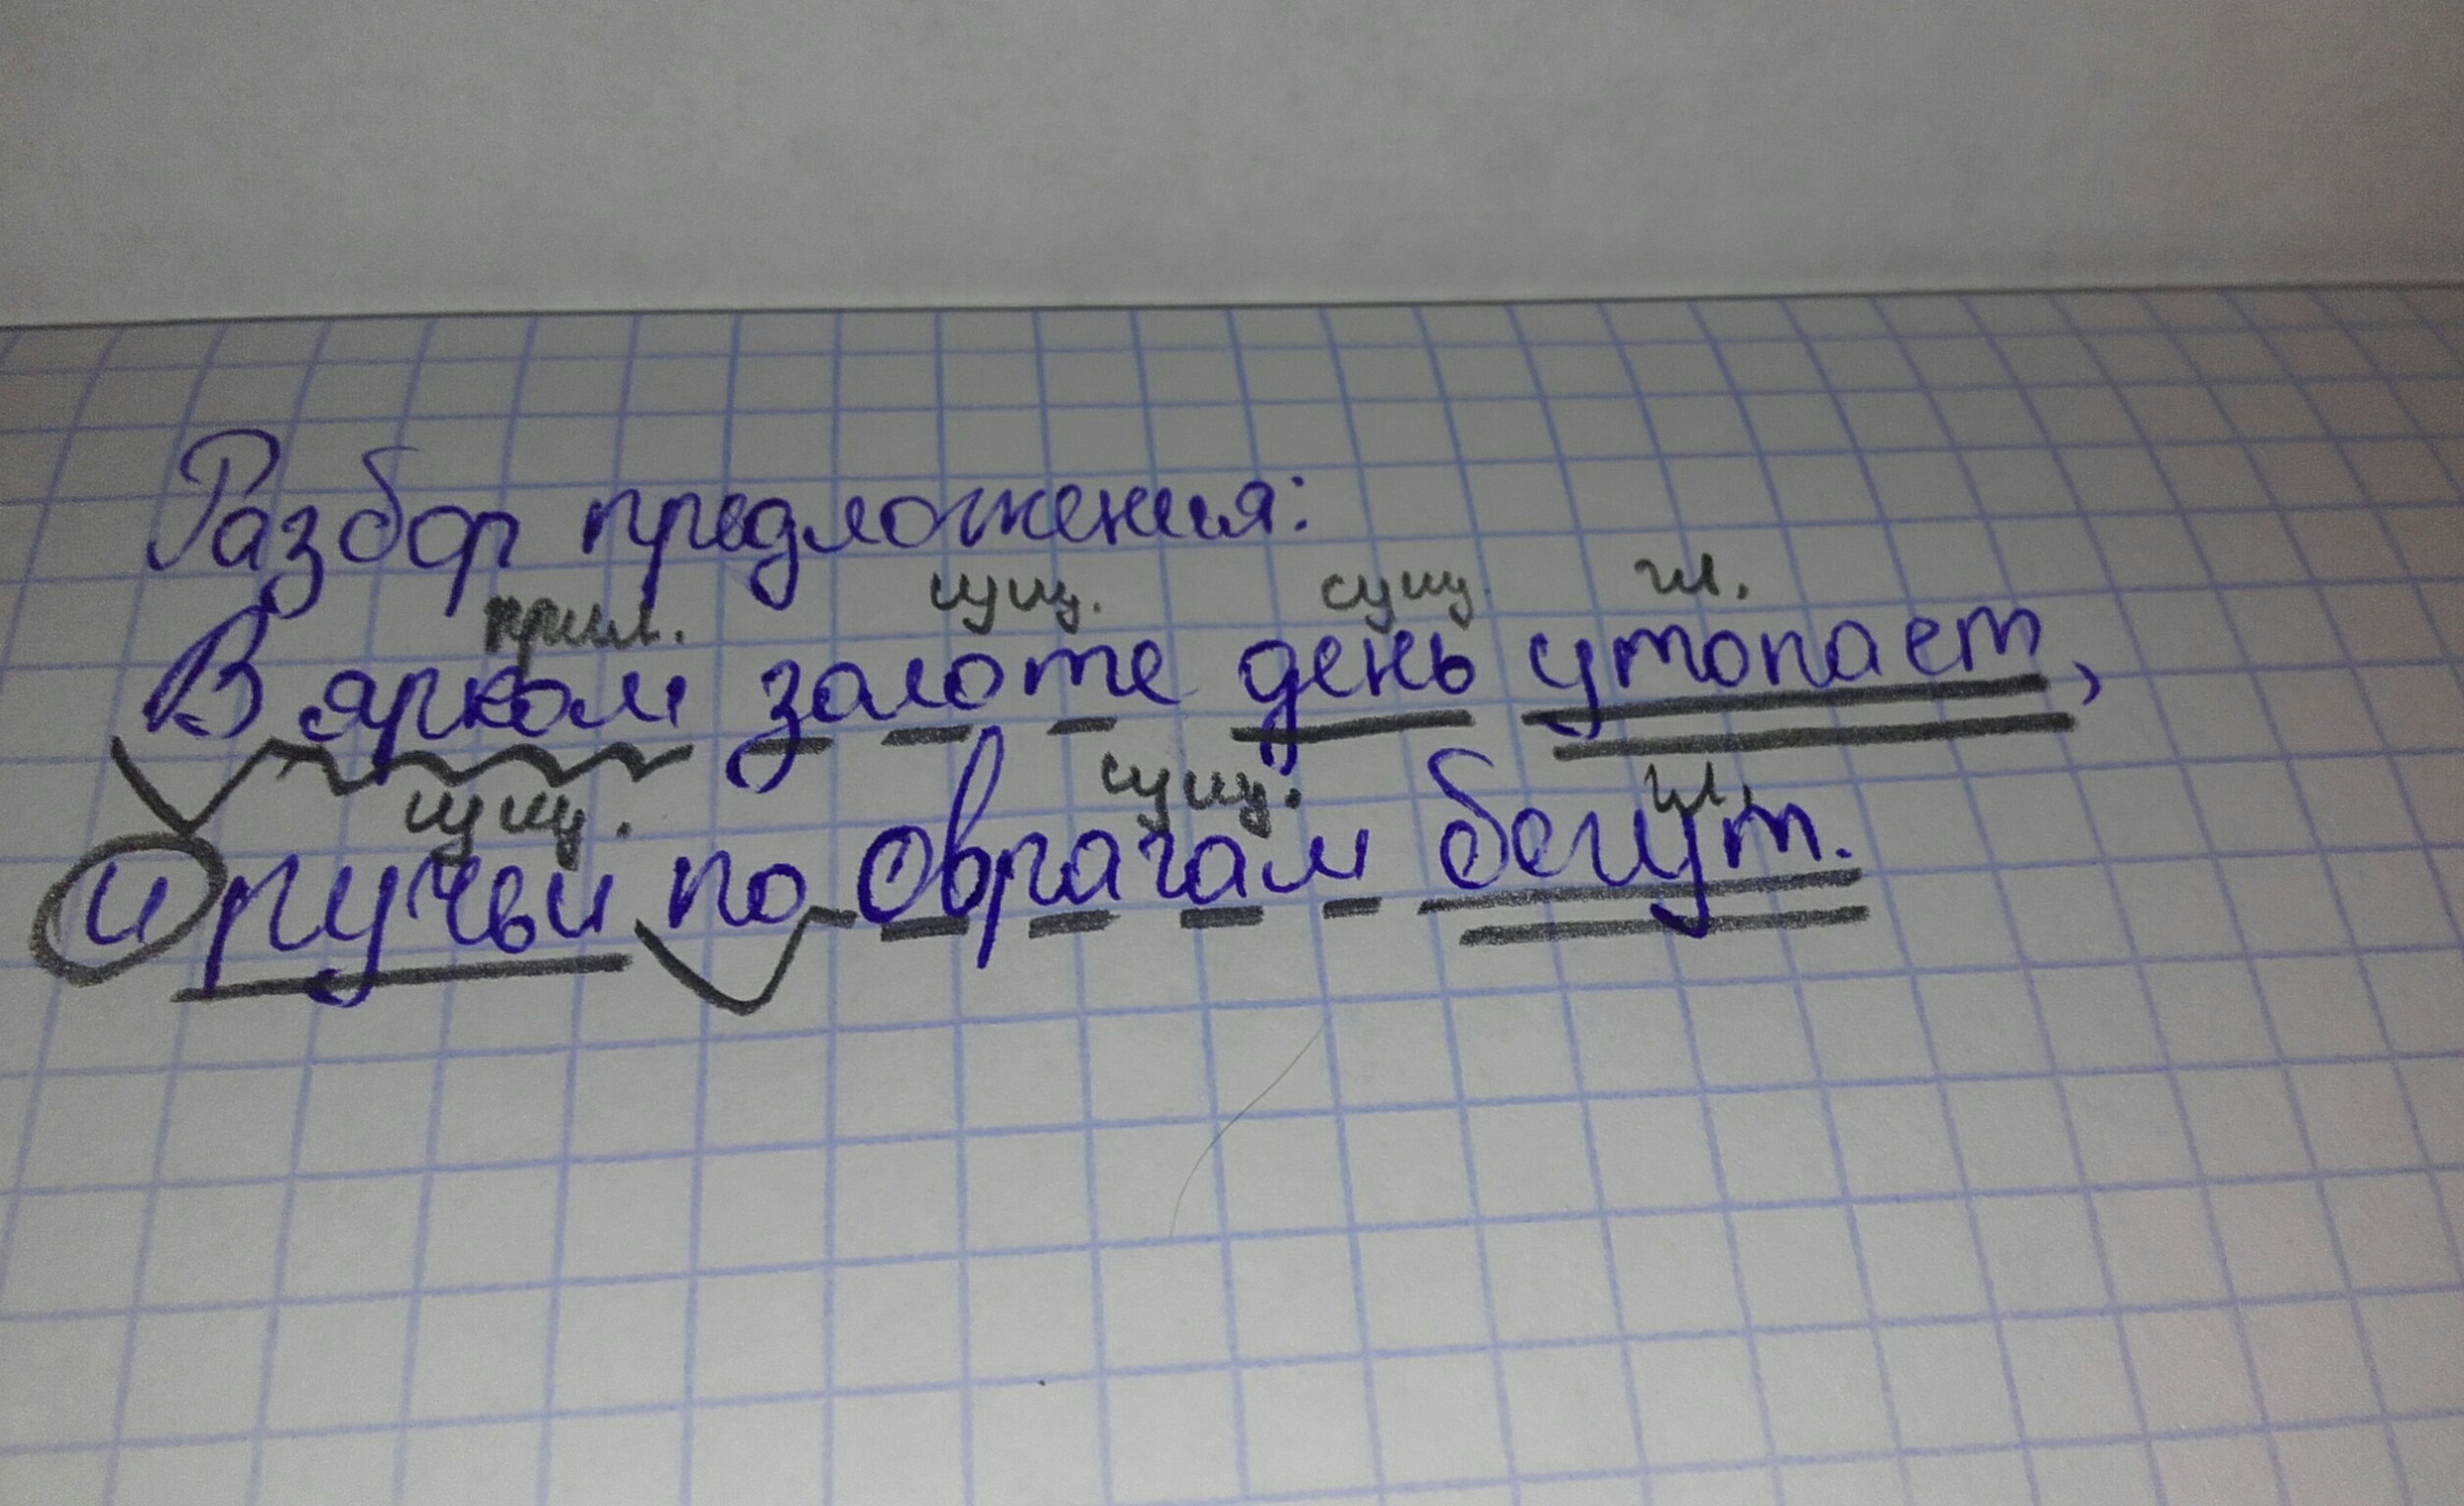 Разбор предложения:
прил. сущ. сущ. гл.
В ярком золоте день утопает,
сущ. сущ. гл.
и ручьи по оврагам бегут.